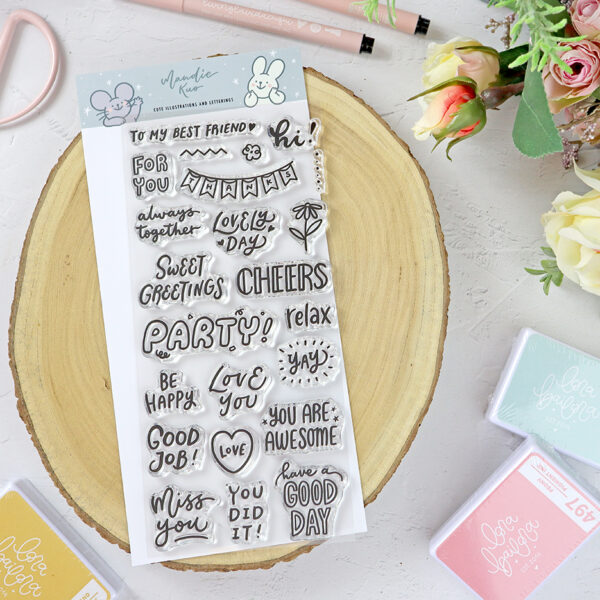 Mandie
Kuo
CUTE ILLUSTRATIONS AND LETTERINGS
TO MY BEST FRIEND
hi!
FOR
YOU
THANKS
always
together
LOVELY
DAY
SWEET
GREETINGS
CHEERS
PARTY!
relax
YAY
BE
HAPPY
LOVE
YOU
YOU ARE
AWESOME
GOOD
JOB!
LOVE
Miss
you
YOU
DID
IT!
have a
GOOD
DAY
lora
bailora
497
lora
bailora
lora
bailora